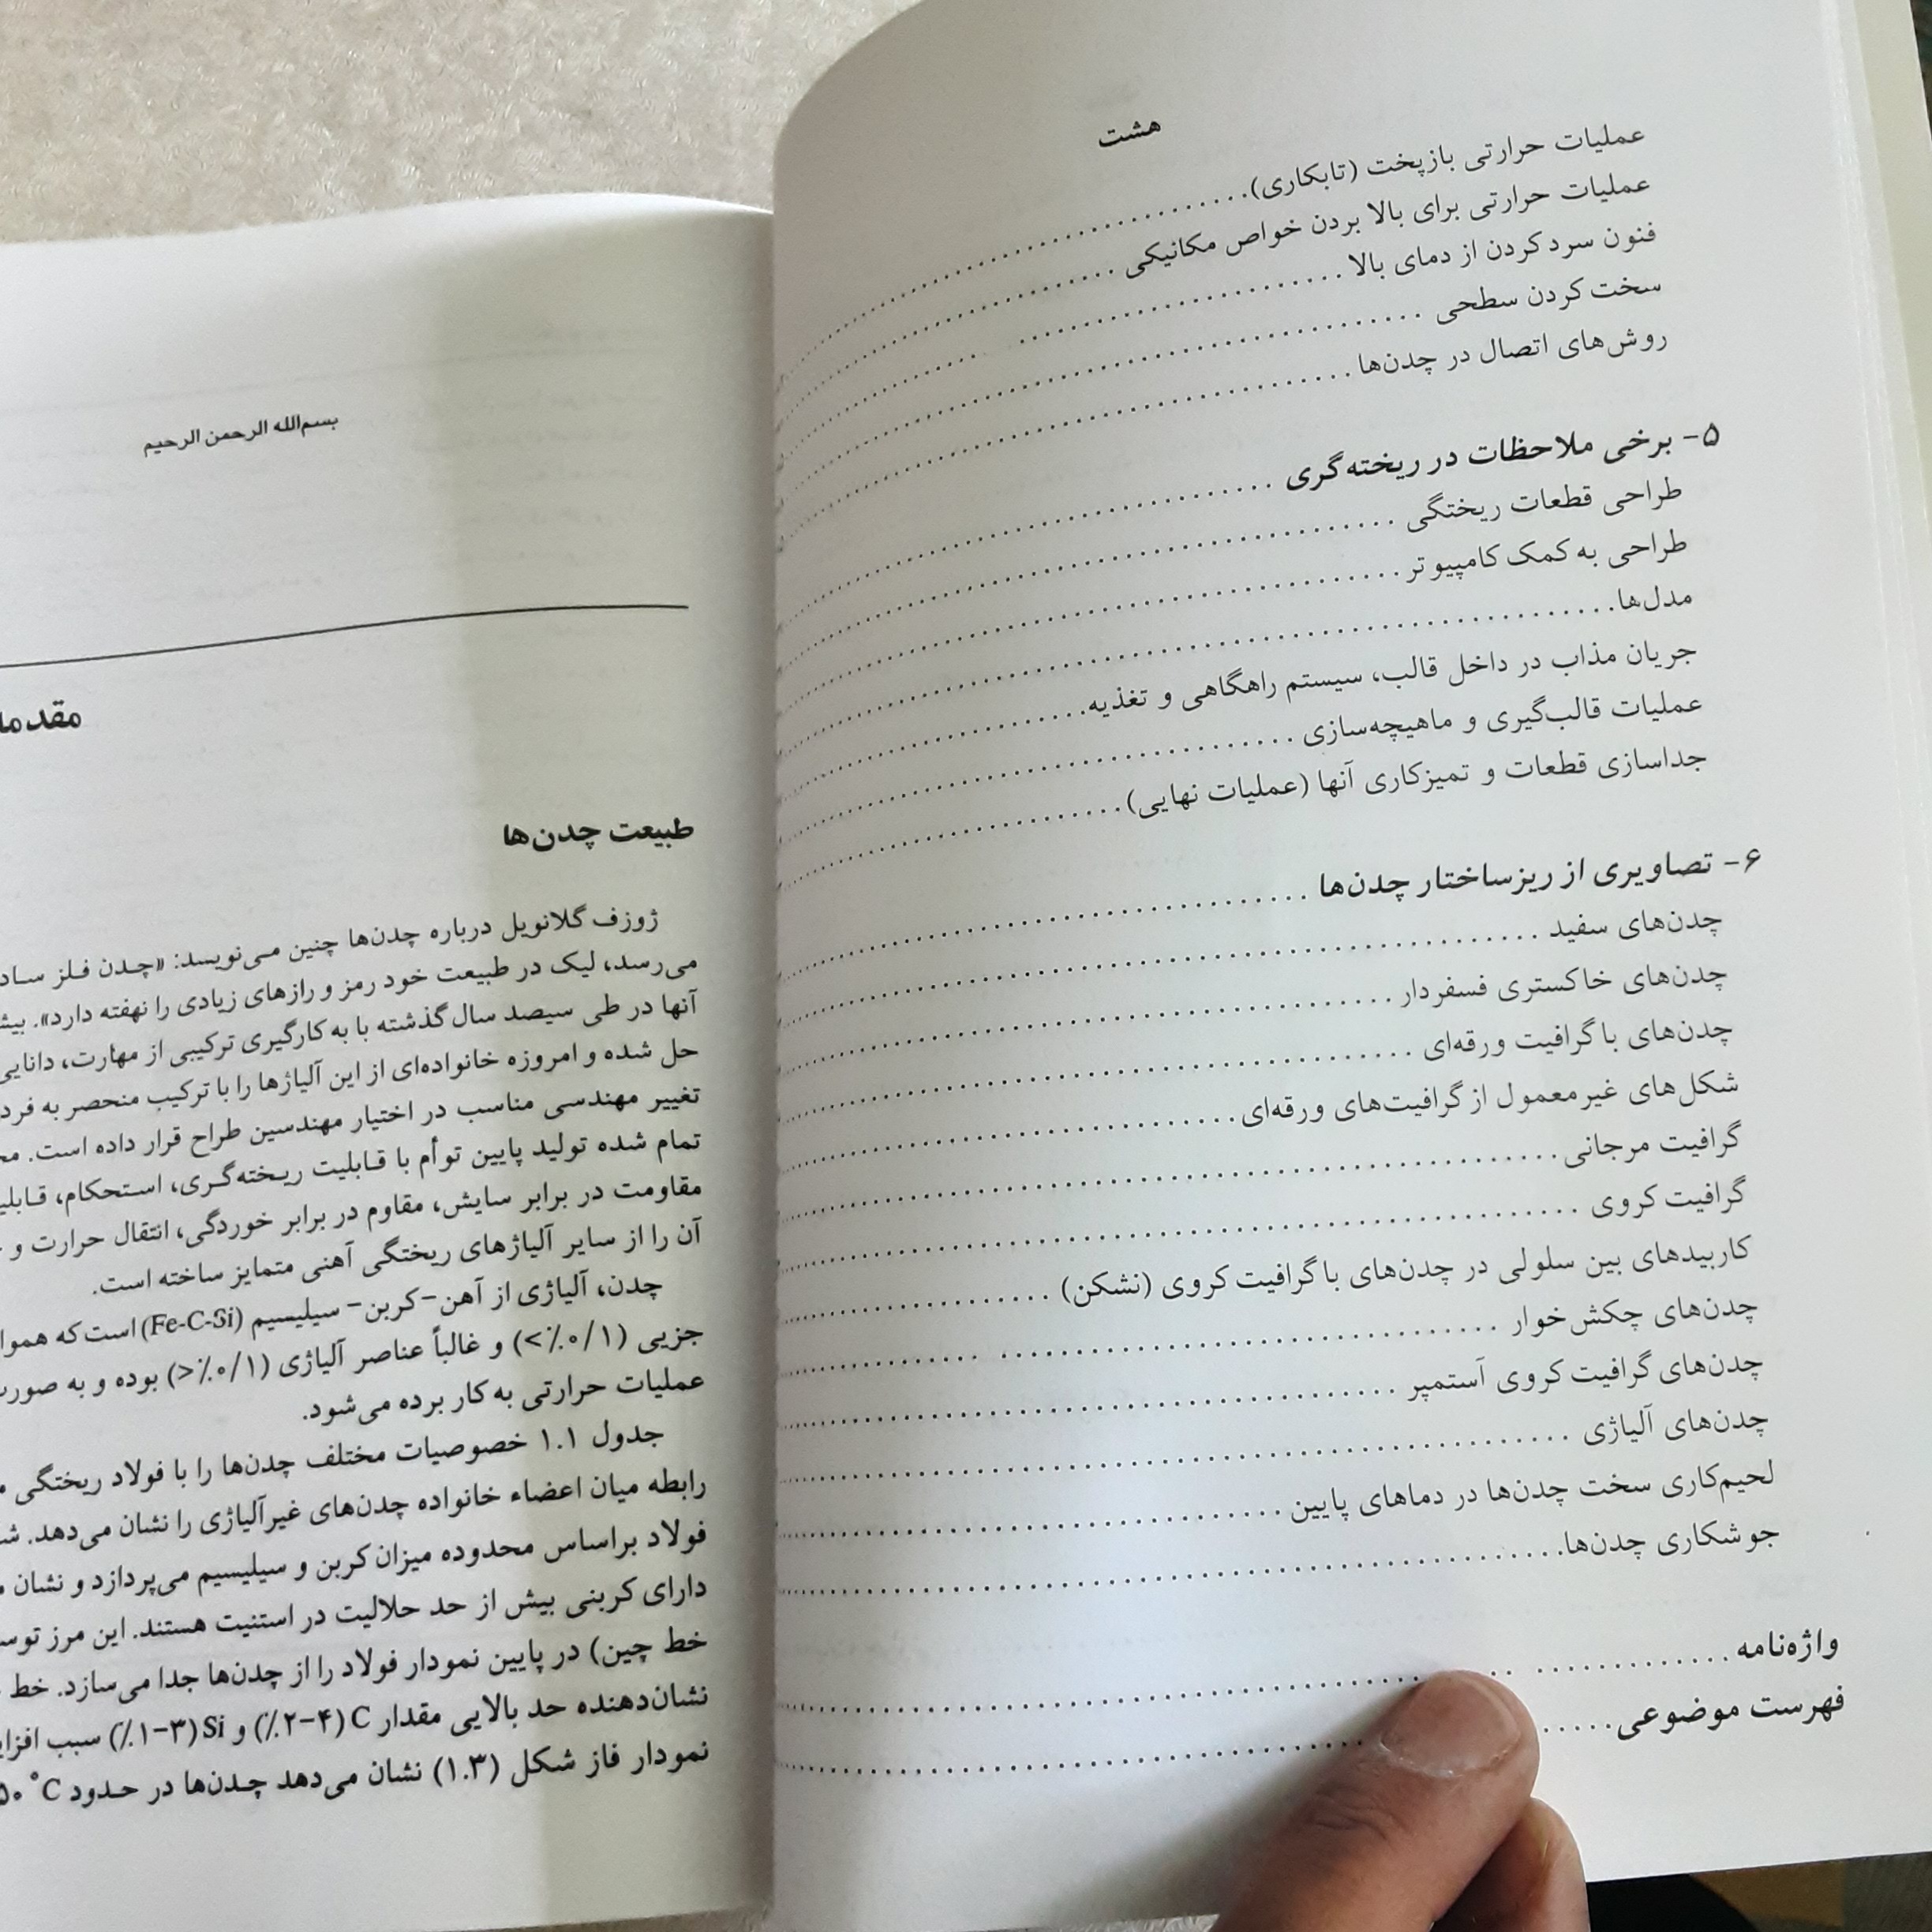 هشت
عملیات حرارتی بازپخت (تابکاری)
عملیات حرارتی برای بالا بردن خواص مکانیکی
فنون سرد کردن از دمای بالا
سخت کردن سطحی
روش‌های اتصال در چدن‌ها
۵- برخی ملاحظات در ریخته‌گری
طراحی قطعات ریختگی
طراحی به کمک کامپیوتر
مدل‌ها
جریان مذاب در داخل قالب، سیستم راهگاهی و تغذیه
عملیات قالب‌گیری و ماهیچه‌سازی
جداسازی قطعات و تمیزکاری آنها (عملیات نهایی)
۶- تصاویری از ریزساختار چدن‌ها
چدن‌های سفید
چدن‌های خاکستری فسفردار
چدن‌های با گرافیت ورقه‌ای
شکل‌های غیرمعمول از گرافیت‌های ورقه‌ای
گرافیت مرجانی
گرافیت کروی
کاربیدهای بین سلولی در چدن‌های با گرافیت کروی (نشکن)
چدن‌های چکش‌خوار
چدن‌های گرافیت کروی آستمپر
چدن‌های آلیاژی
لحیم‌کاری سخت چدن‌ها در دماهای پایین
جوشکاری چدن‌ها
واژه‌نامه
فهرست موضوعی
بسم‌الله الرحمن الرحیم
طبیعت چدن‌ها
ژوزف گلانویل درباره چدن‌ها چنین می‌نویسد: «چدن فلز
می‌رسد، لیک در طبیعت خود رمز و رازهای زیادی را نهفته دارد».
آنها در طی سیصد سال گذشته با به کارگیری ترکیبی از مهارت،
حل شده و امروزه خانواده‌ای از این آلیاژها را با ترکیب منحصر به
تغییر مهندسی مناسب در اختیار مهندسین طراح قرار داده است.
تمام شده تولید پایین توأم با قابلیت ریخته‌گری، استحکام،
مقاومت در برابر سایش، مقاوم در برابر خوردگی، انتقال حرارت و
آن را از سایر آلیاژهای ریختگی آهنی متمایز ساخته است.
چدن، آلیاژی از آهن-کربن-سیلیسیم (Fe-C-Si) است که
جزیی (۰/۱٪>) و غالباً عناصر آلیاژی (۰/۱٪<) بوده و به
عملیات حرارتی به کار برده می‌شود.
جدول ۱.۱ خصوصیات مختلف چدن‌ها را با فولاد ریختگی
رابطه میان اعضاء خانواده چدن‌های غیرآلیاژی را نشان می‌دهد.
فولاد براساس محدوده میزان کربن و سیلیسیم می‌پردازد و نشان
دارای کربنی بیش از حد حلالیت در استنیت هستند. این مرز
خط چین) در پایین نمودار فولاد را از چدن‌ها جدا می‌سازد. خط
نشان‌دهنده حد بالایی مقدار C (۲-۴٪) و Si (۱-۳٪) سبب
نمودار فاز شکل (۱.۳) نشان می‌دهد چدن‌ها در حدود